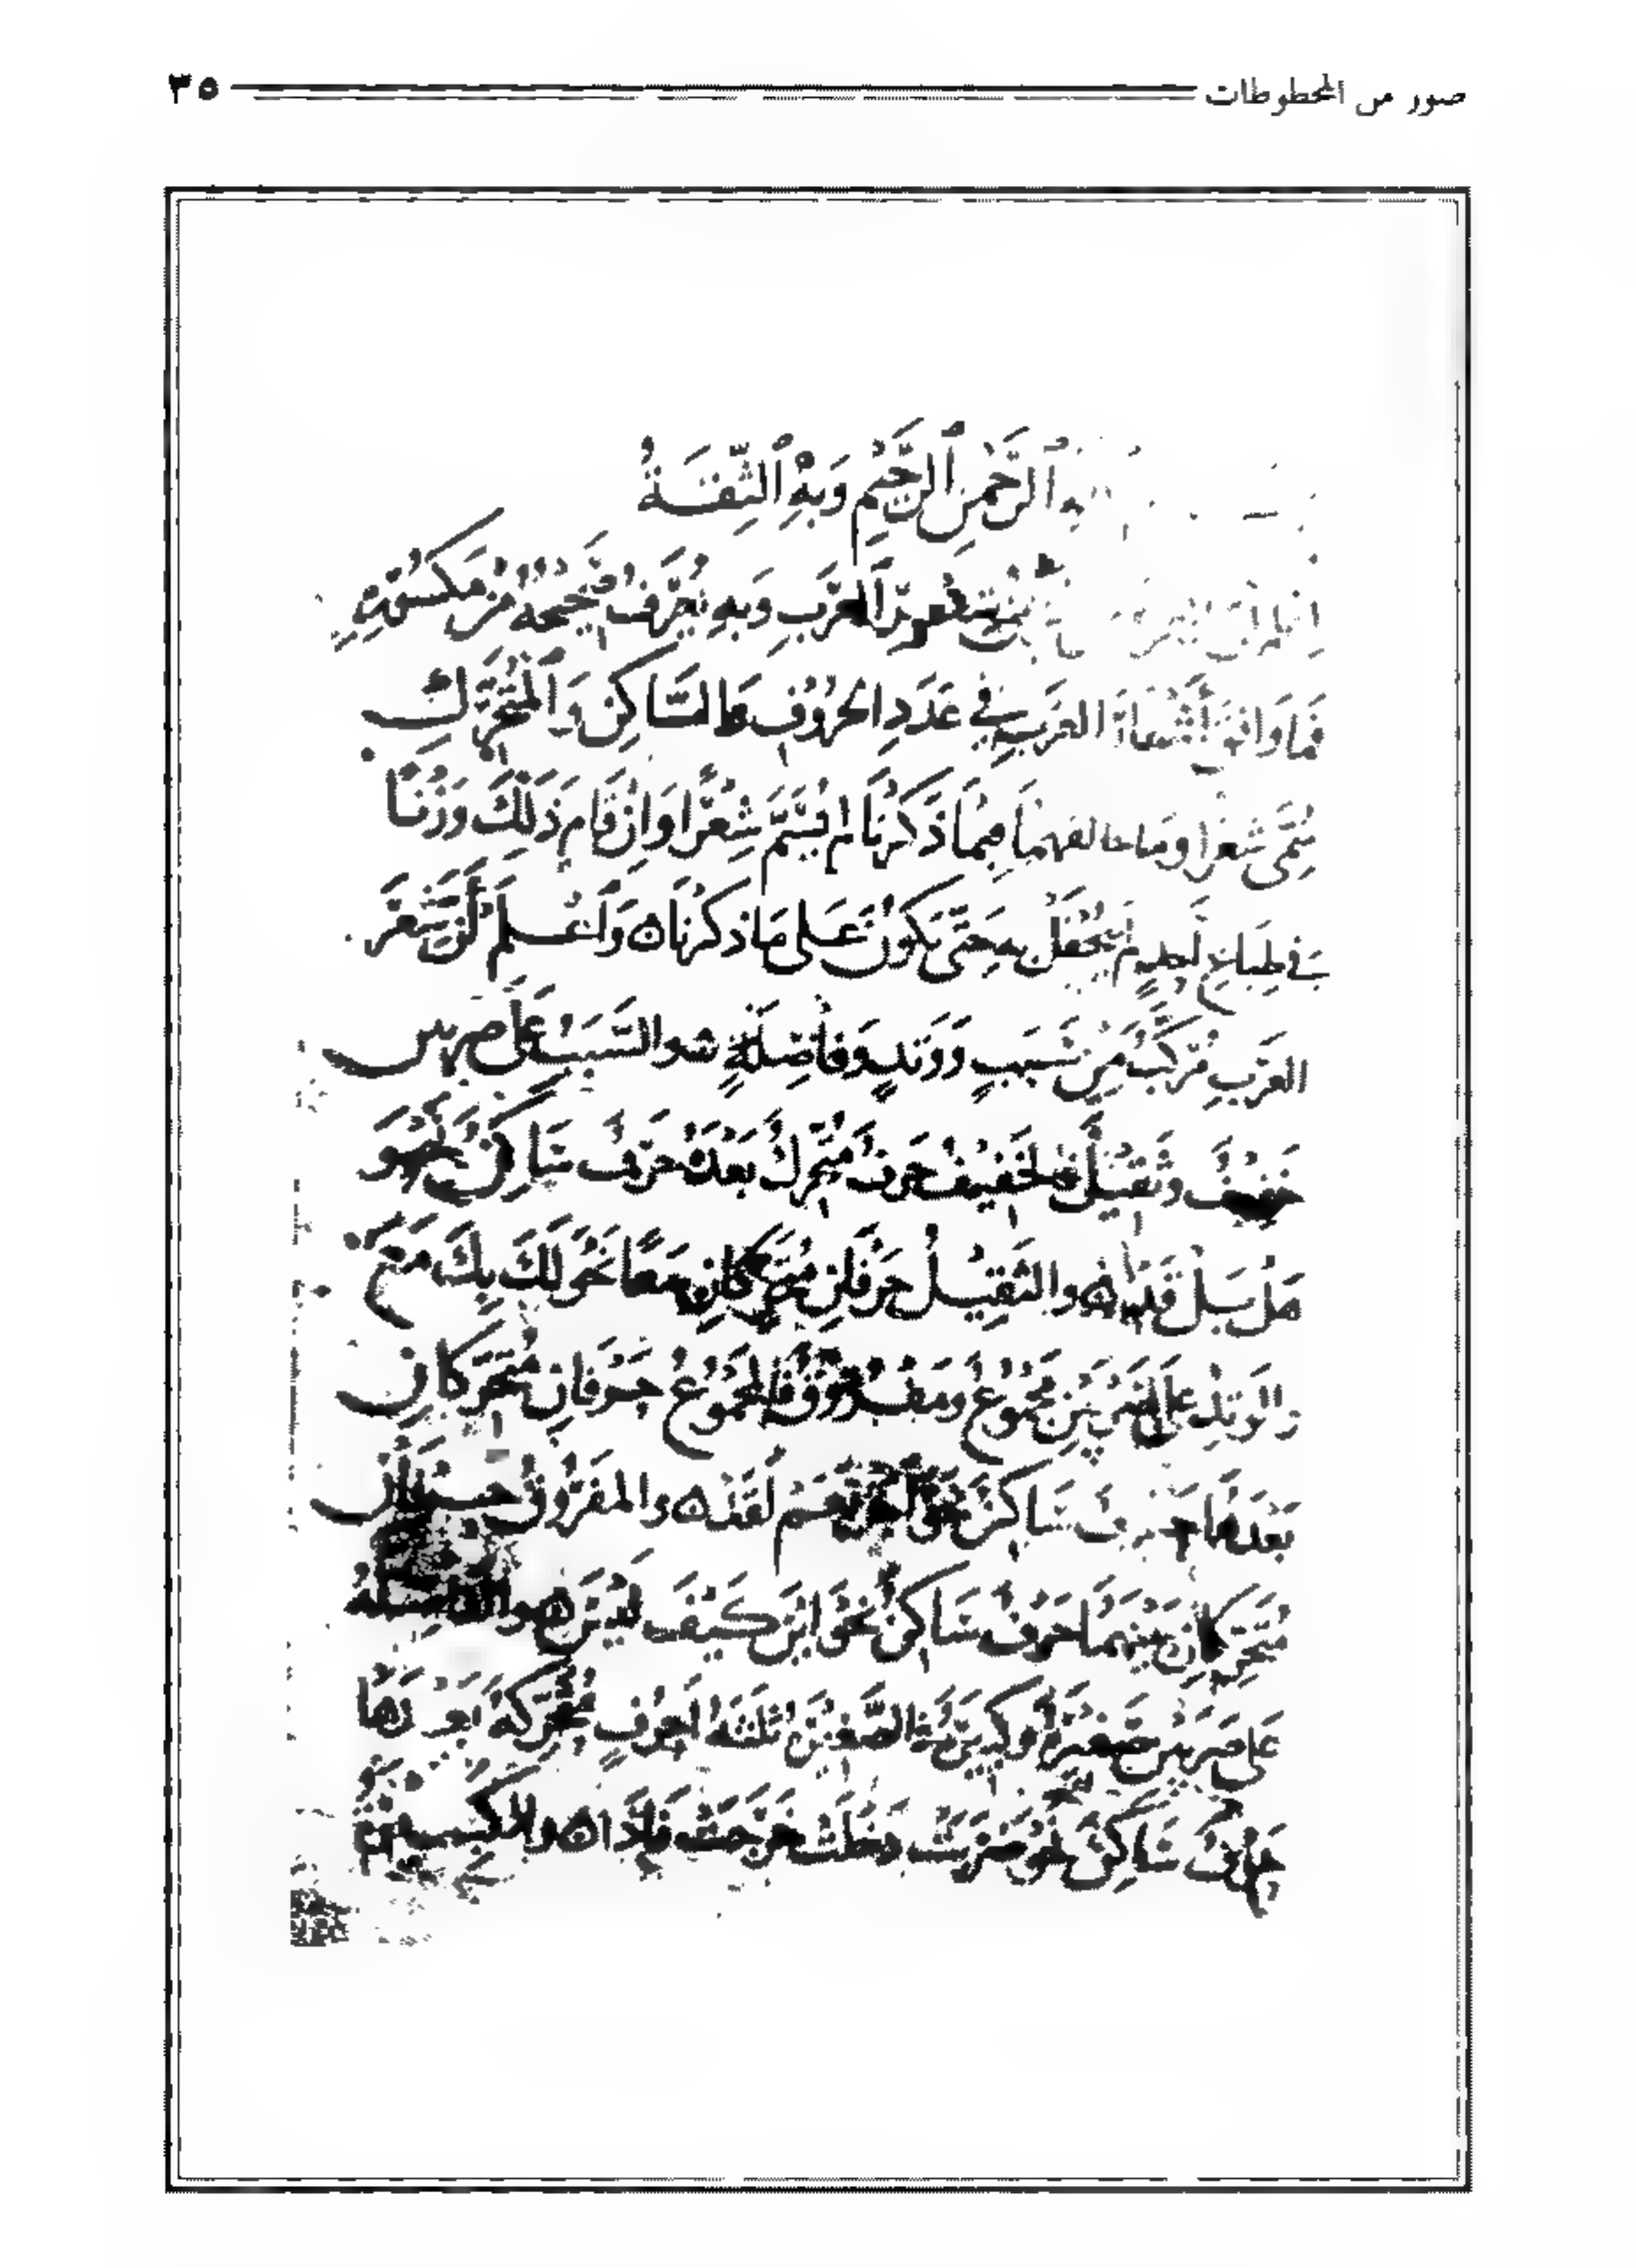 صور من المخطوطات ٣٥
الرَّحْمٰنِ الرَّحِيْمِ وَبِهِ الثِّقَةُ
العَرَبِ وَبِهِ يُعْرَفُ صَحِيْحُهُ مِنْ مَكْسُوْرِهِ
فَمَا وَافَقَ أَشْعَارَ العَرَبِ فِي عَدَدِ الحُرُوْفِ السَّاكِنِ وَالمُتَحَرِّكِ
سُمِّيَ شِعْرًا وَمَا خَالَفَهُ فِيْمَا ذَكَرْنَا لَمْ يُسَمَّ شِعْرًا وَإِنْ قَامَ ذَلِكَ وَزْنًا
فِي طِبَاعِ لَمْ يُحْفَلْ بِهِ حَتَّى يَكُوْنَ عَلَى مَا ذَكَرْنَاهُ وَاعْلَمْ أَنَّ شِعْرَ
العَرَبِ مُرَكَّبٌ مِنْ سَبَبٍ وَوَتَدٍ وَفَاصِلَةٍ ٥ والسَّبَبُ عَلَى ضربين
خَفِيْفٌ وَثَقِيْلٌ فالخَفِيْفُ حَرْفٌ مُتَحَرِّكٌ بَعْدَهُ حَرْفٌ سَاكِنٌ نَحْوَ
هَلْ بَلْ قَدْ ٥ والثَّقِيْلُ حَرْفَانِ مُتَحَرِّكَانِ مَعًا نَحْوَ لَكَ بِكَ مَعَ
والوَتَدُ عَلَى ضَرْبَيْنِ مَجْمُوْعٌ وَمَفْرُوْقٌ فَالمَجْمُوْعُ حَرْفَانِ مُتَحَرِّكَانِ
بَعْدَهُمَا حَرْفٌ سَاكِنٌ نَحْوَ نَعَمْ لَقَدْ ٥ والمَفْرُوْقُ حَرْفَانِ
مُتَحَرِّكَانِ بَيْنَهُمَا حَرْفٌ سَاكِنٌ نَحْوَ أَيْنَ كَيْفَ لَيْسَ ٥ والفَاصِلَةُ
عَلَى ضَرْبَيْنِ صَغِيْرَةٌ وَكَبِيْرَةٌ فالصُّغْرَى ثَلَثَةُ أَحْرُفٍ مُتَحَرِّكَةٍ بَعْدَهَا
حَرْفٌ سَاكِنٌ نَحْوَ ضَرَبَتْ دَخَلَتْ خَرَجَتْ